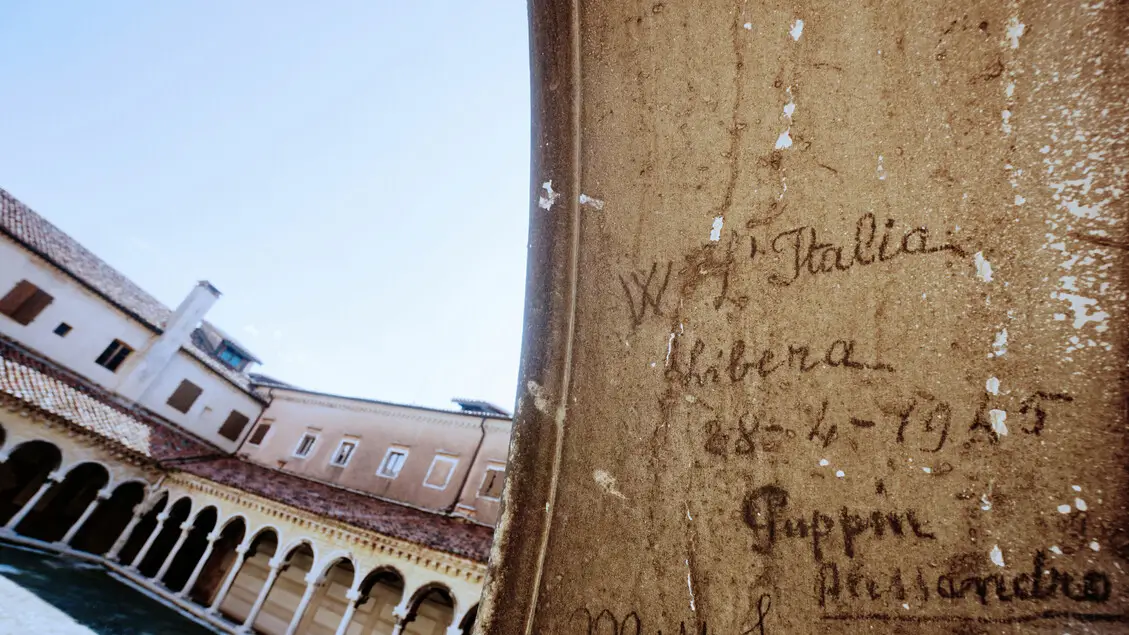 W l'Italia
libera
28-4-1945
Guppin
Alessandro